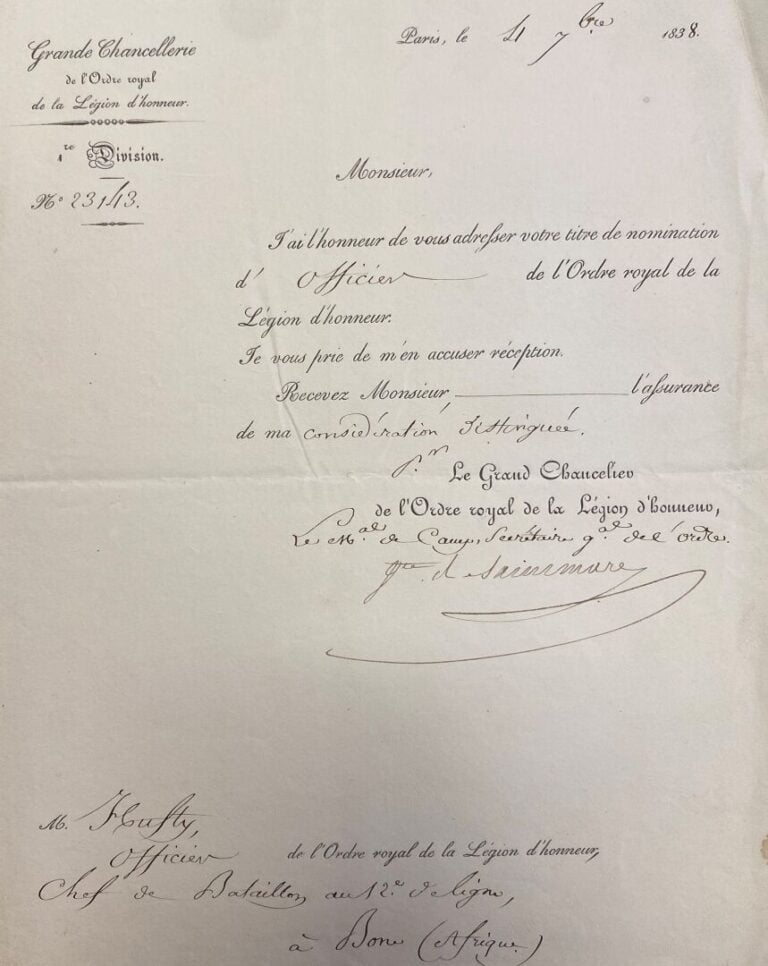 Grande Chancellerie
de l'Ordre royal
de la Légion d'honneur.
1re Division.
N° 23143.
Paris, le 4 7bre 1838.
Monsieur,
J'ai l'honneur de vous adresser votre titre de nomination
d' officier de l'Ordre royal de la
Légion d'honneur.
Je vous prie de m'en accuser réception.
Recevez Monsieur, l'assurance
de ma considération distinguée.
P.r Le Grand Chancelier
de l'Ordre royal de la Légion d'honneur,
Le M.al de Camp, Secrétaire g.al de l'ordre.
de
M. Husty,
officier de l'Ordre royal de la Légion d'honneur,
Chef de Bataillon au 12e de ligne,
à Bone (Afrique)